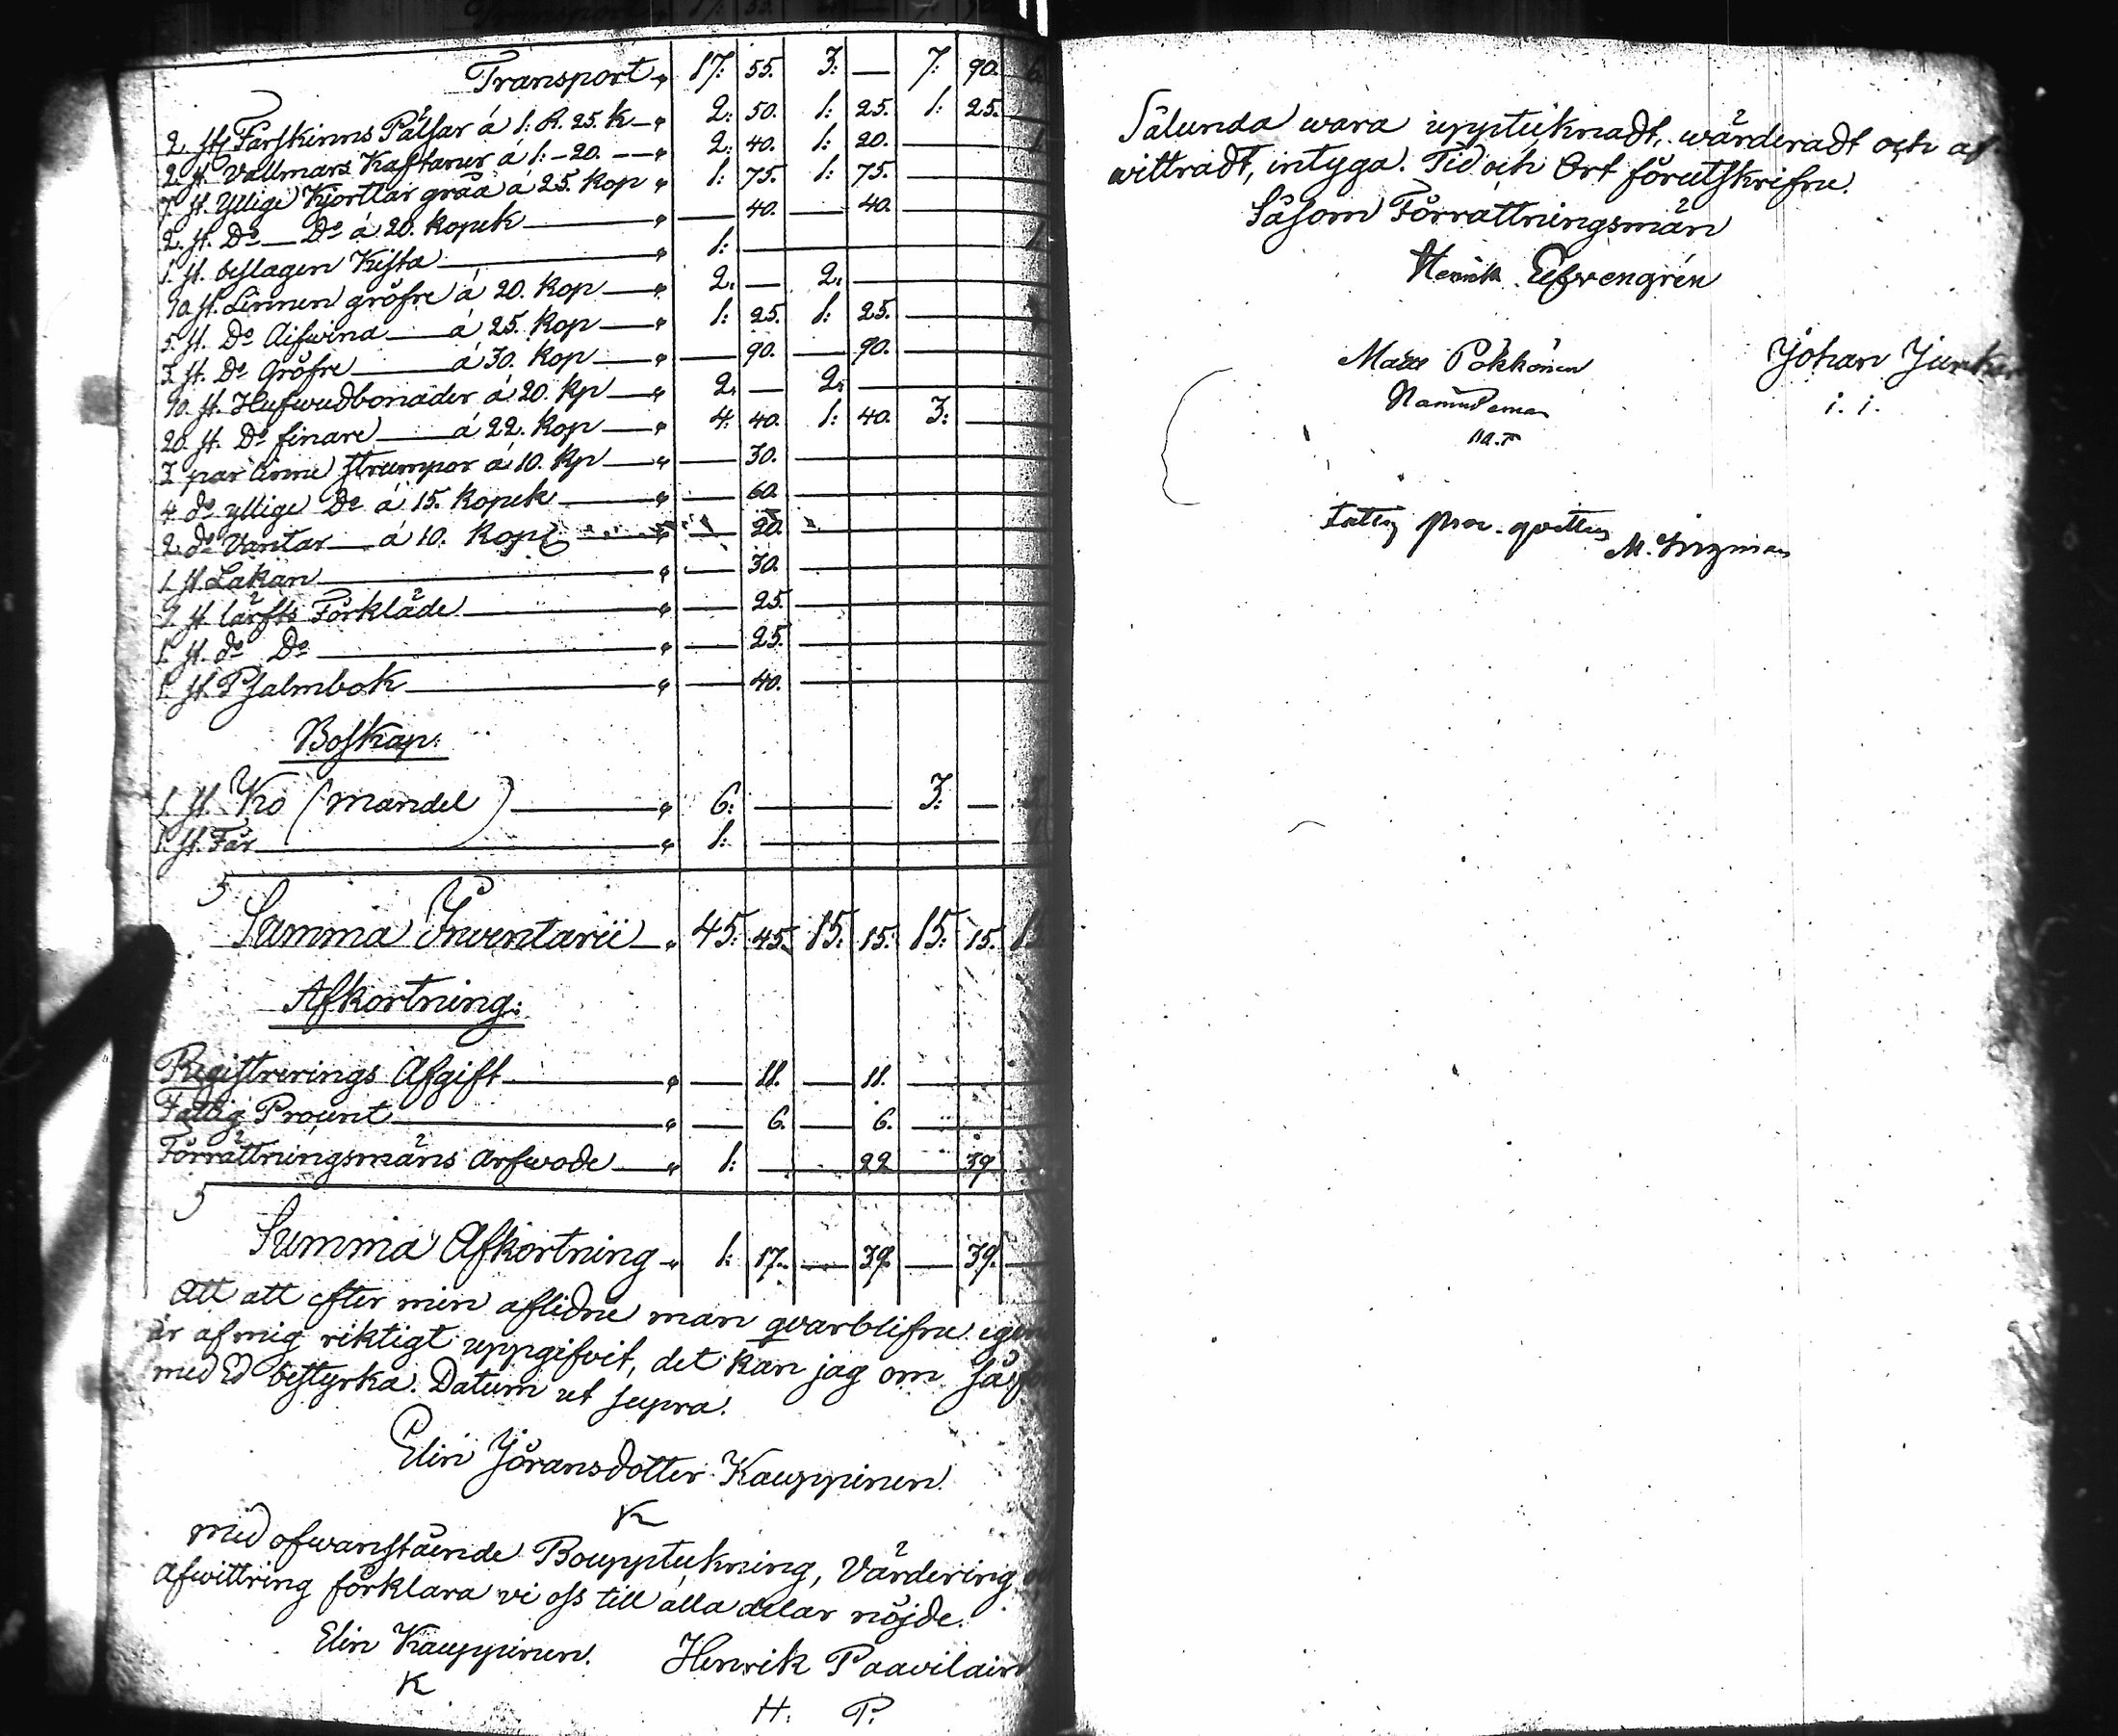 Transport „ 17: 55. 3: — 7: 90. 6
2. st. Fårskinns Pälsar á 1: R. 25. K — „ 2: 50. 1: 25. 1: 25.
2. st. Vallmars Kaftaner á 1: — 20. — „ 2: 40. 1: 20. — 1
7. st. Yllige Kjortlar gråa á 25. Kop „ 1: 75. 1: 75. —
2. st. Do — Do á 20. Kopek — „ — 40. — 40. —
1. st. beslagen Kista — „ 1: — 1
10. st. Linnen gröfre á 20. Kop — „ 2. — 2. —
5. st. Do Aifwina — á 25. Kop — „ 1: 25. 1: 25. —
3. st. Do Gröfre — á 30. Kop — „ — 90. — 90. —
10. st. Hufwudbonader á 20. Kp — „ 2. — 2. —
20. st. Do finare — á 22. Kop — „ 4: 40. 1: 40. 3: —
3 par strumpor á 10. Kp — „ — 30. —
4 do yllige Do á 15. Kopek — „ — 60. —
2 do Vantar — á 10. Kop — „ — 20. —
1. st. Lakan — „ — 30. —
st. lärfts Förkläde — „ — 25. —
1. st. do Do — „ — 25. —
1. st. Psalmbok — „ — 40. —
Boskap:
1. st. Ko (Mandel) — „ 6: — 3: —
1. st. Får — „ 1: —
Summa Inventarii — „ 45: 45. 15: 15. 15: 15. 15
Afkortning:
Registrerings Afgift — „ — 11. — 11. —
Fattig Procent — „ — 6. — 6. —
Förrättningsmäns Arfwode — „ 1: — 22 39
Summa Afkortning „ 1: 17. — 39. — 39. —
Att att efter min aflidne man qvarblifne egen
är af mig riktigt uppgifvit, det kan jag om så
med Ed bestyrka. Datum ut supra.
Elin Jöransdotter Kauppinen.
K
Med ofwanstående Bouppteckning, Värdering
Afwittring förklara vi oss till alla delar nöjde.
Elin Kauppinen. Henrik Paavilain
K H. P.
Sålunda wara uppteknadt, wärderadt och af
wittradt, intyga. Tid och Ort förutskrifne.
Såsom Förrättningsmän
Henrik
Matts Pokkonen Johan Junk
i. i.